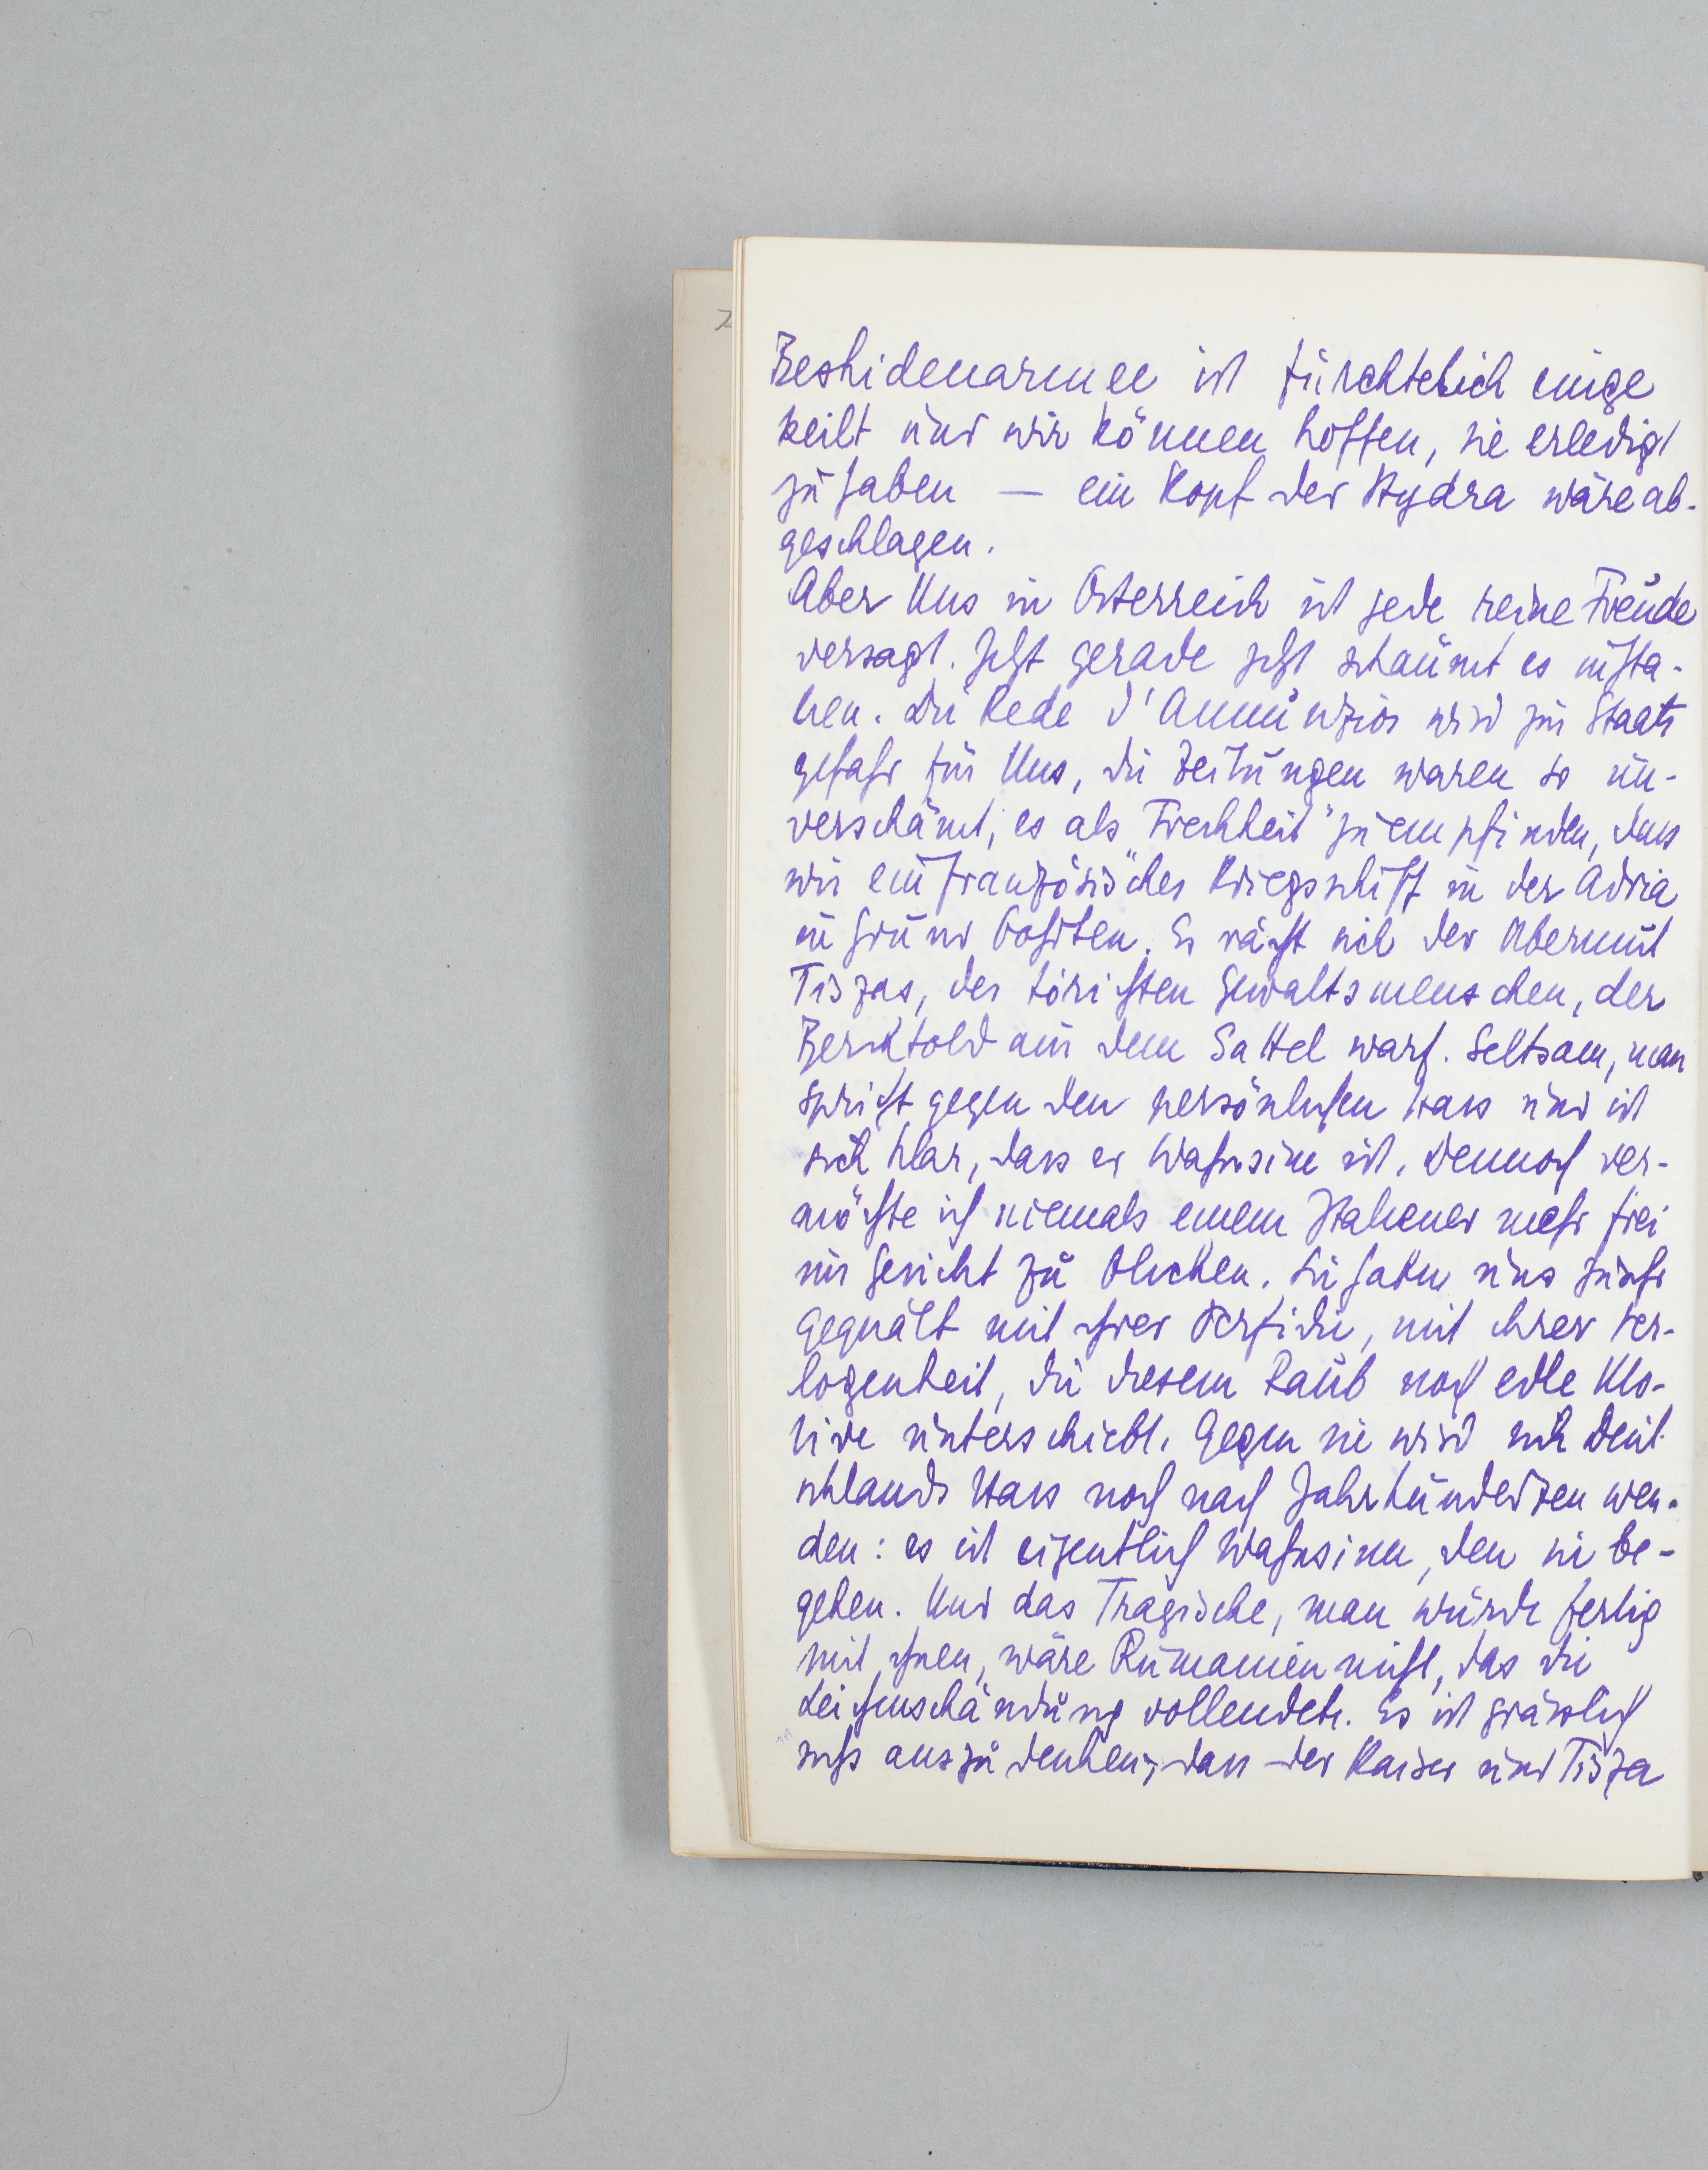 Beskidenarmee ist fürchtelich einge
keilt und wir können hoffen, sie erledigt
zu haben — ein Kopf der Hydra wäre ab-
geschlagen.
Aber Uns in Österreich ist jede reine Freude
versagt. Jetzt gerade jetzt schäumt es in Ita-
lien. Die Rede d'Annunzios wird zur Staats
gefahr für Uns, die Zeitungen waren so un-
verschämt, es als "Frechheit" zu empfinden, dass
wir ein französisches Kriegsschiff in der Adria
in Grund bohrten. Es rächt sich der Übermut
Tiszas, des törichten Gewaltsmenschen, der
Berchtold aus dem Sattel warf. Seltsam, man
spricht gegen den persönlichen Hass und ist
sich klar, dass er Wahnsinn ist. Dennoch ver-
möchte ich niemals einem Italiener mehr frei
ins Gesicht zu blicken. Sie haben uns zu sehr
gequält mit ihrer Perfidie, mit ihrer Ver-
logenheit, die diesem Raub noch edle Mo-
tive unterschiebt. Gegen sie wird sich Deut
schlands Hass noch nach Jahrhunderten wen-
den: es ist eigentlich Wahnsinn, den sie be-
gehen. Und das Tragische, man würde fertig
mit ihnen, wäre Rumänien nicht, das die
Leichenschändung vollendete. Es ist grässlich
sichs auszudenken, dass der Kaiser und Tisza